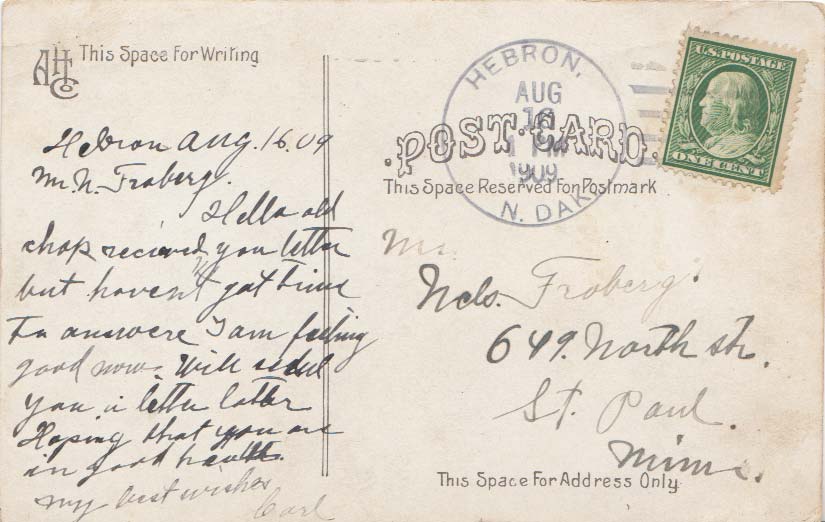 AHCo
This Space For Writing
Hebron Aug. 16. 09
Mr. N. Froberg.
Hello old
chap recieved you letter
but havent got time
To answere I am feeling
good now. Will send
you a letter latter
Hoping that you are
in good health.
my best wishes
Carl
HEBRON,
AUG
16
1 PM
1909
N. DAK.
U.S. POSTAGE
ONE CENT
POST CARD
This Space Reserved For Postmark
Mr.
Nels. Froberg.
649. North str.
St. Paul.
Minn.
This Space For Address Only